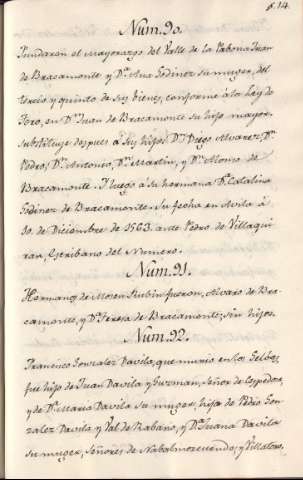 f. 14.
Num. 90.
Fundaron el Mayorazgo del Valle de la Pabona Juan
de Bracamonte y Dª Ana Godinez su muger, del
tercio y quinto de sus bienes, conforme à la Ley de
Toro, en Dn Juan de Bracamonte su hijo mayor,
substituye despues à sus hijos Dn Diego Alvarez, Dn
Pedro, Dn Antonio, Dn Martin, y Dn Alonso de
Bracamonte. Y luego à su hermana Dª Catalina
Godinez de Bracamonte. Su fecha en Avila à
10. de Diciembre de 1563. ante Pedro de Villaqui
ran, Escribano del Numero.
Num. 91.
Hermanos de Mosen Rubin fueron, Alvaro de Bra-
camonte, y Dª Teresa de Bracamonte, sin hijos.
Num. 92.
Francisco Gonzalez Davila, que murio en los Gelbes,
fue hijo de Juan Davila y Guzman, señor de Cespedosa,
y de Dª Maria Davila su muger, hija de Pedro Gon
zalez Davila y Val de Rabano, y Dª Juana Davila
su muger, Señores de Nabalmorcuende, y Villatoro,